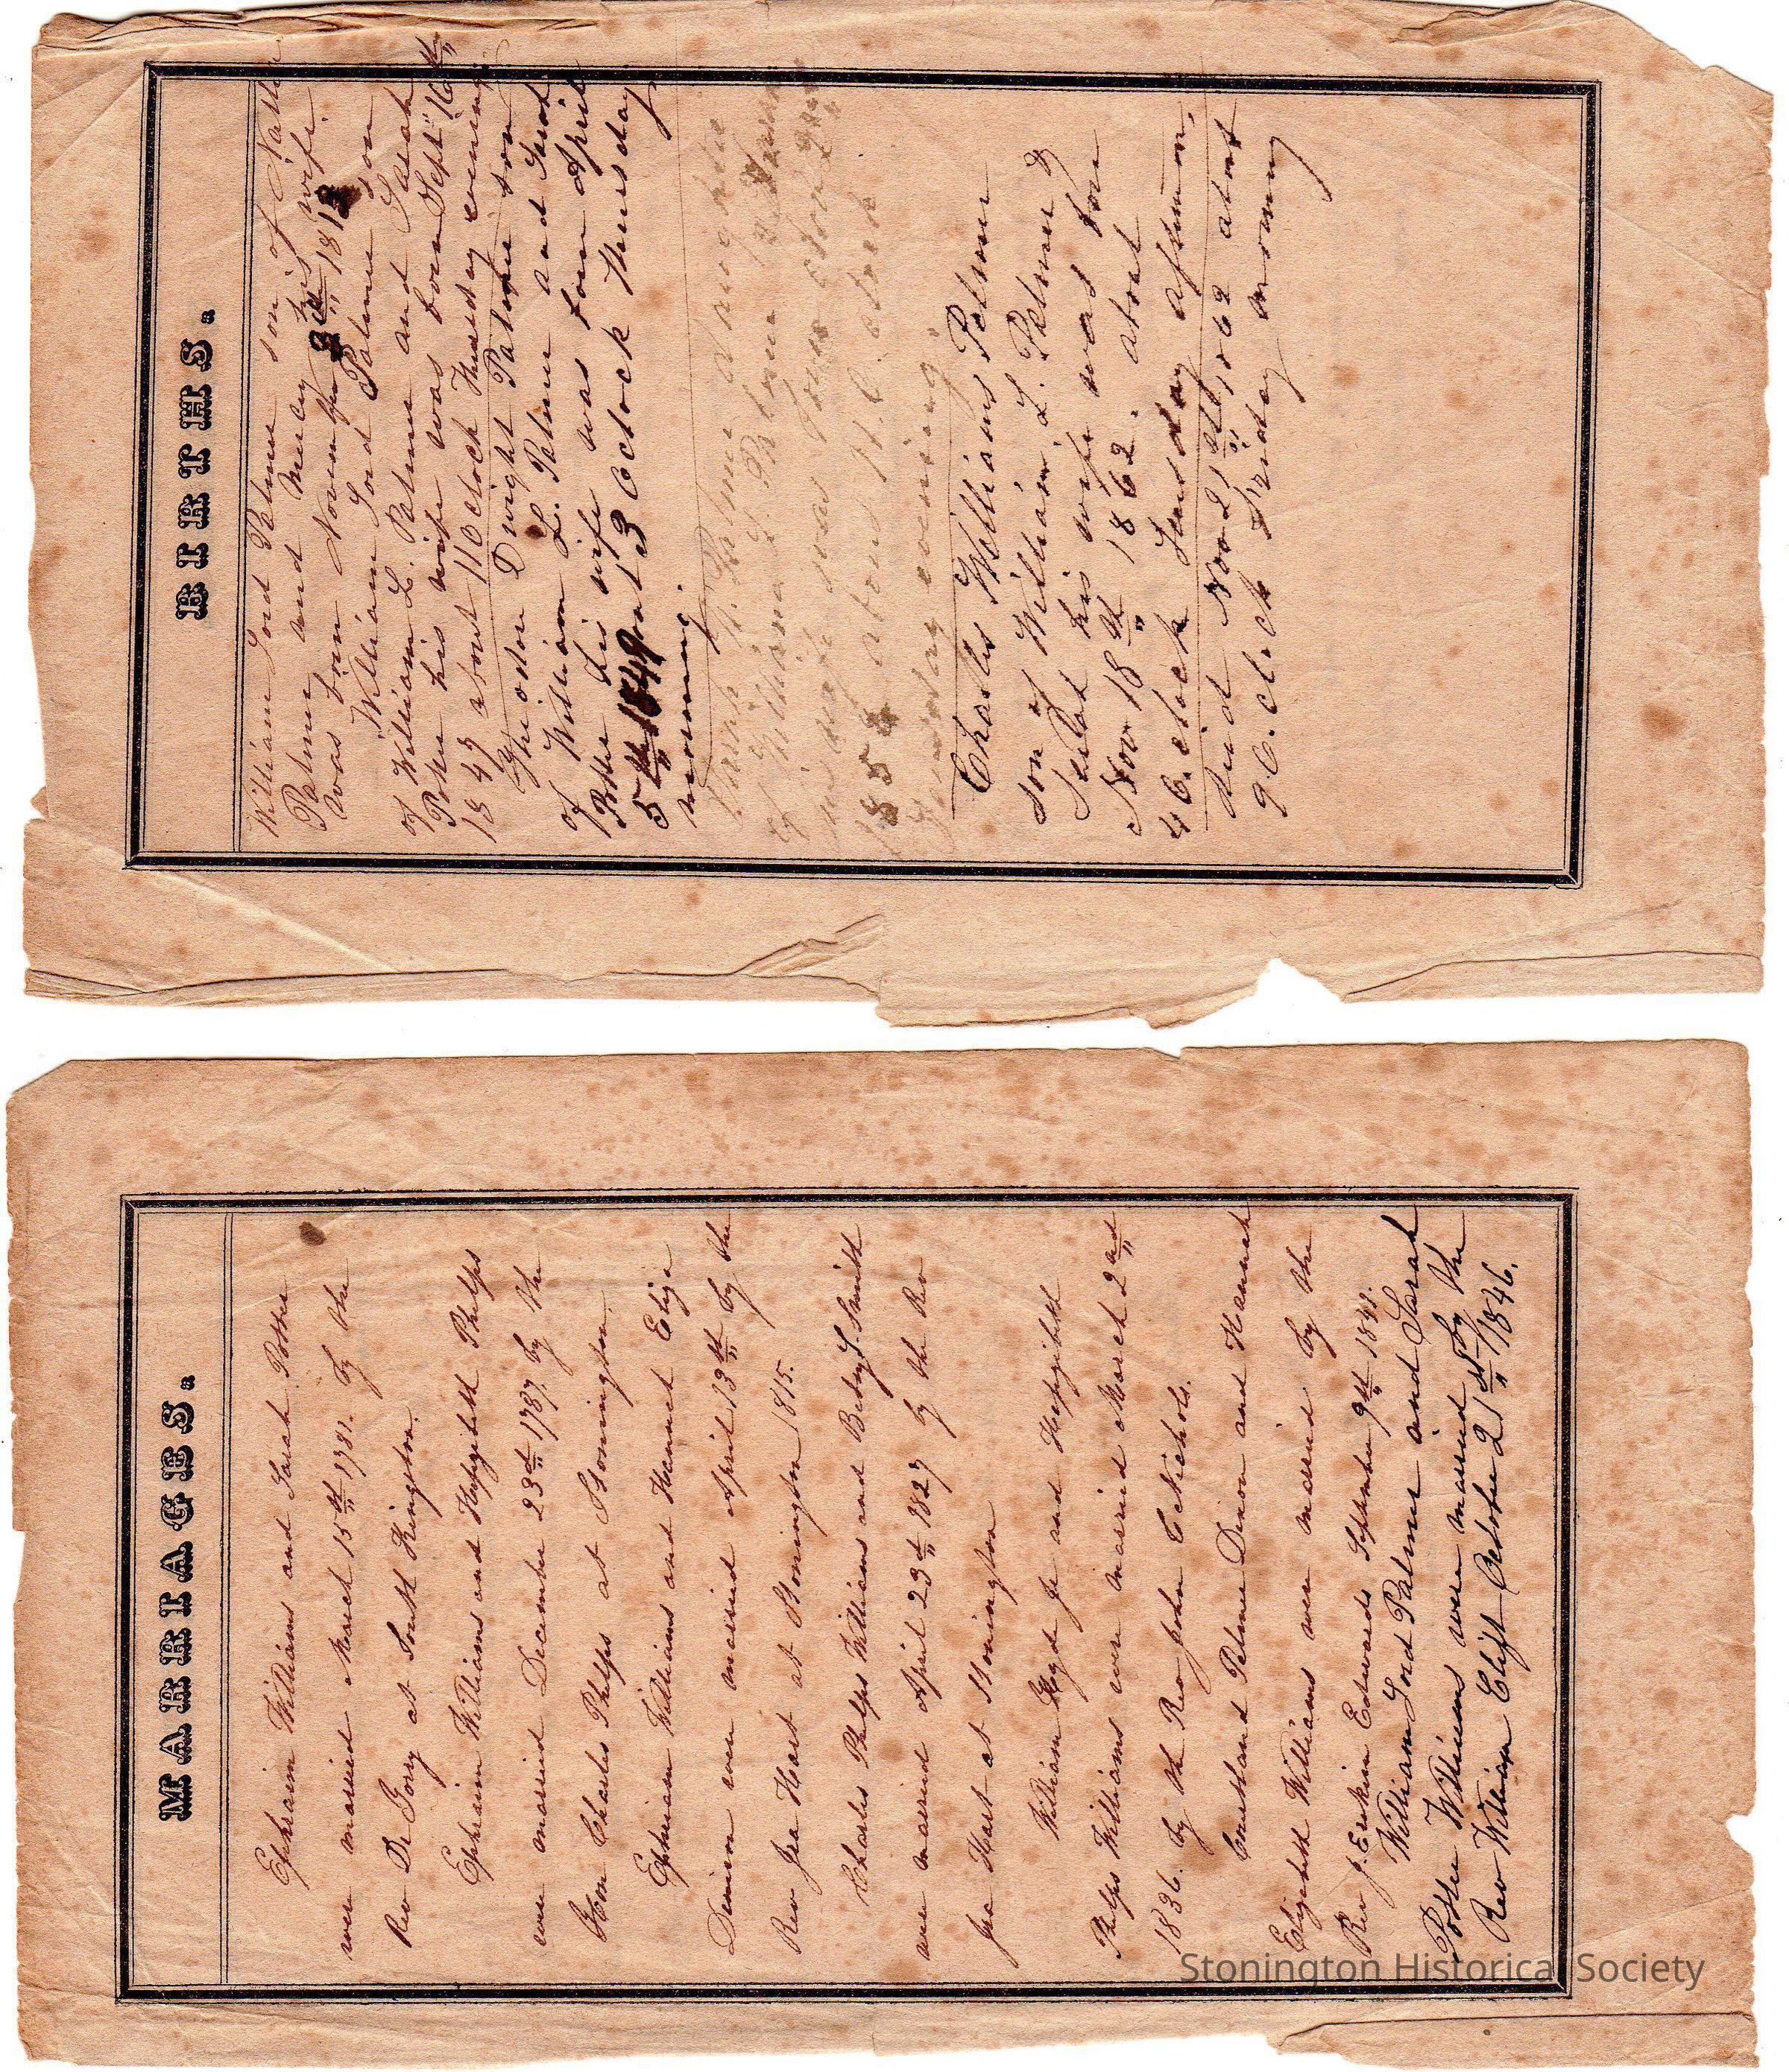 BIRTHS.
William Lord Palmer son of
Palmer and his wife.
was born November 1815
William Lord Palmer son
of William L. Palmer and Sarah
Potter his wife was born Sept 16th
1847 about 11 Oclock Thursday evening
Dwight Palmer son
of William L. Palmer and Sarah
Potter his wife was born April
5th 1849 at 3 Oclock Thursday
morning.
Sarah Palmer daughter
of William L. Palmer
his wife was born
1858 about 11 O. clock
evening.
Charles Williams Palmer
son of William L. Palmer &
Sarah his wife was born
Nov 18th 1862. about
4 O. clock Tuesday afternoon,
died Nov 21st 1862 about
9 O. clock Friday morning
MARRIAGES.
Ephraim Williams and Sarah Potter
were married March 15th 1781. by the
Rev Dr Torry at South Kingston.
Ephraim Williams and Hepzibeth Phelps
were married December 23d 1787. by the
Hon Charles Phelps at Stonington.
Ephraim Williams and Hannah Eliza
Denison were married April 13th by the
Rev Ira Hart at Stonington 1815.
Charles Phelps Williams and Betsy S. Smith
were married April 23d 1827 by the Rev
Ira Hart at Stonington
William Hyde Jr and Hepzibeth
Phelps Williams were married March 2nd
1836. by the Rev John C Nichols.
Courtland Palmer Dixon and Hannah
Elizabeth Williams were married by the
Rev J. Erskin Edwards September 9th 1841.
William Lord Palmer and Sarah
Potter Williams were married by the
Rev William Clift October 21st 1846.
Stonington Historical Society